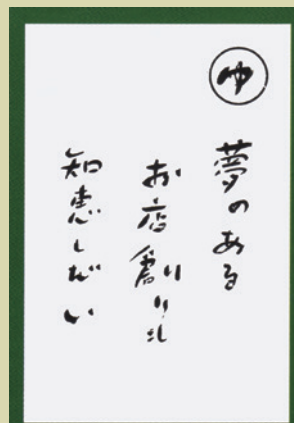 ゆ
夢のある
お店創りは
知恵しだい